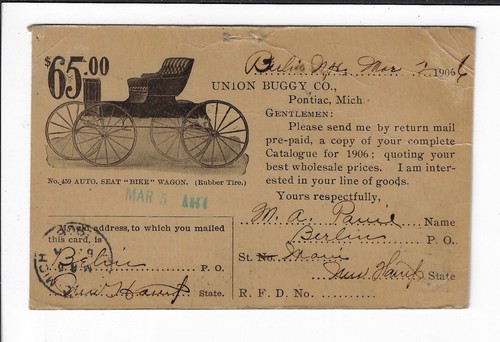 $65.00
No. 459 AUTO. SEAT "BIKE" WAGON. (Rubber Tire.)
MAR 5
My old address, to which you mailed
this card, is
Berlin
P. O.
State.
MICH
Berlin Mar 1906
UNION BUGGY CO.,
Pontiac, Mich.
GENTLEMEN:
Please send me by return mail
pre-paid, a copy of your complete
Catalogue for 1906; quoting your
best wholesale prices. I am inter-
ested in your line of goods.
Yours respectfully,
M. A. Name
Berlin P. O.
St. No. Main
State
R. F. D. No.